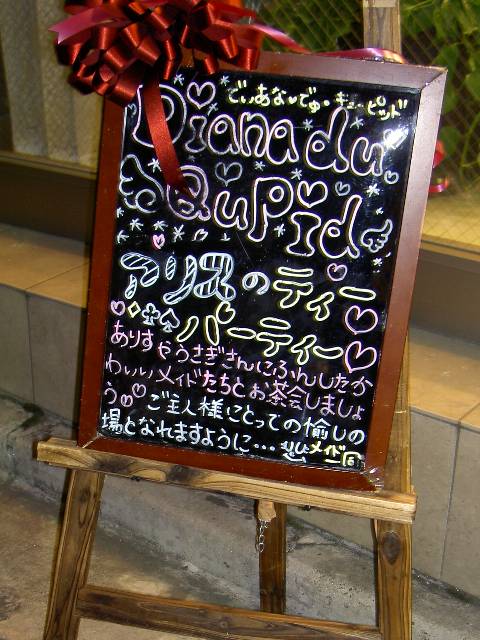 でぃあな♥でゅ・キューピッド
Diana du
Qupid
アリスのティー
パーティー
ありすやうさぎさんにふんしたか
わいいメイドたちとお茶会しましょ
う♡♡ ご主人様にとっての愉しの
場となれますように…
メイド